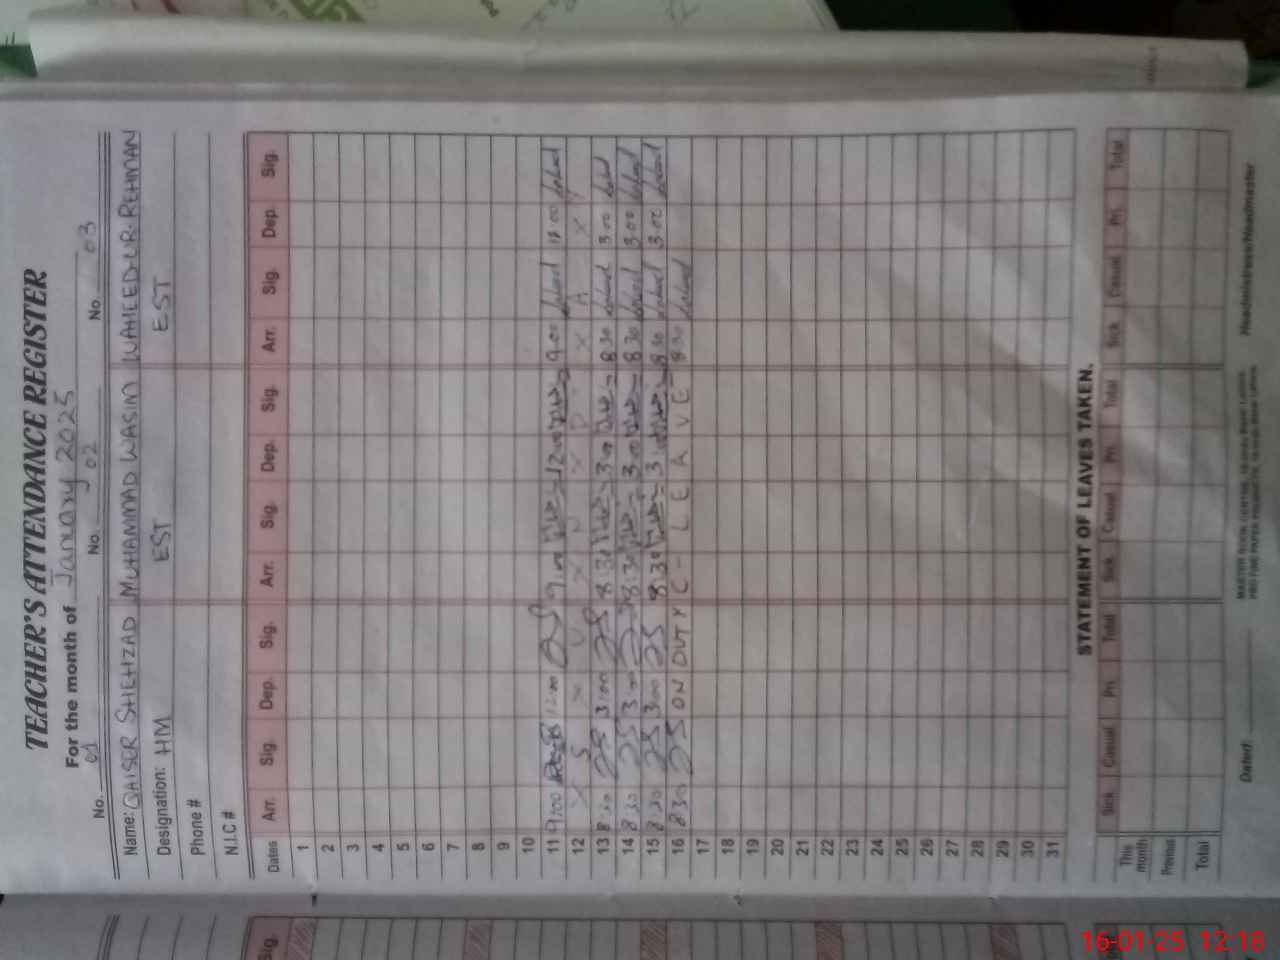 TEACHER'S ATTENDANCE REGISTER
For the month of January 2025
No. 01 No. 02 No. 03
Name: QAISER SHEHZAD MUHAMMAD WASIM WAHEED-UR-REHMAN
Designation: HM EST EST
Phone #
N.I.C #
Dates Arr. Sig. Dep. Sig. Arr. Sig. Dep. Sig. Arr. Sig. Dep. Sig.
1
2
3
4
5
6
7
8
9
10
11 9:00 12:00 9:00 12:00 9:00 12:00
12 X S X U X N X D X A X Y
13 8:30 3:00 8:30 3:00 8:30 3:00
14 8:30 3:00 8:30 3:00 8:30 3:00
15 8:30 3:00 8:30 3:00 8:30 3:00
16 8:30 ON DUTY C - LEAVE - 8:30
17
18
19
20
21
22
23
24
25
26
27
28
29
30
31
STATEMENT OF LEAVES TAKEN.
Sick Casual Pri. Total Sick Casual Pri. Total Sick Casual Pri. Total
This month
Previous
Total
Dated: Headmistress/Headmaster
Sig.
16-01-25 12:18